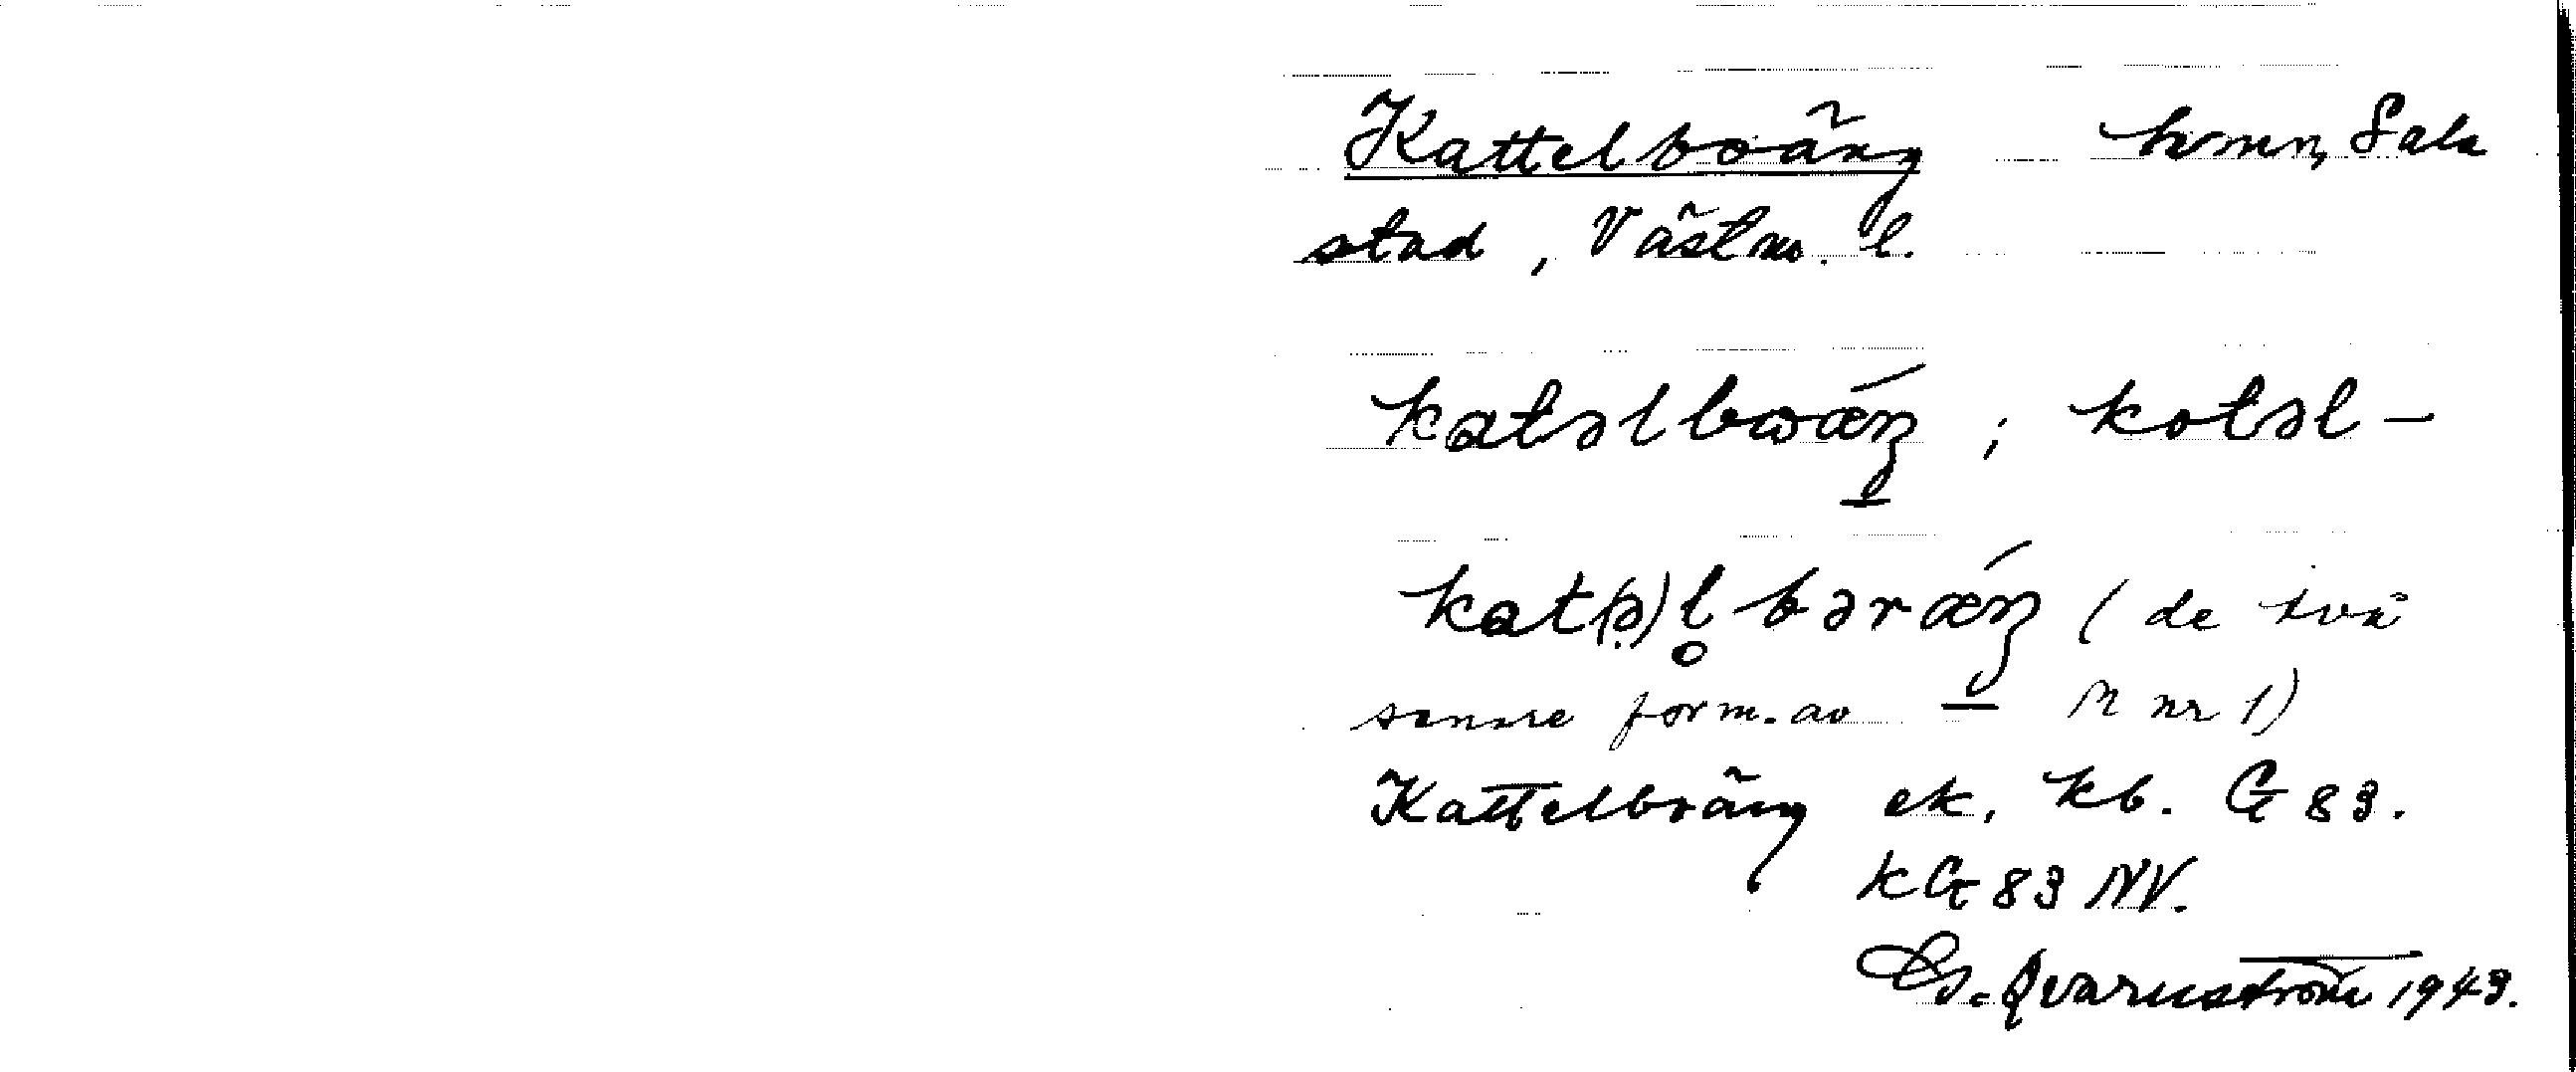 Kattelboäng hemn, Sala
stad, Västm. l.
katəlbωǽŋ ; kotəl-
kat(ə)l̥ bərǽŋ (de två
senare form. av M nr 1)
Kattelbräng ek. kb. G 83.
kG 83 NV.
Qvarnström 1943.